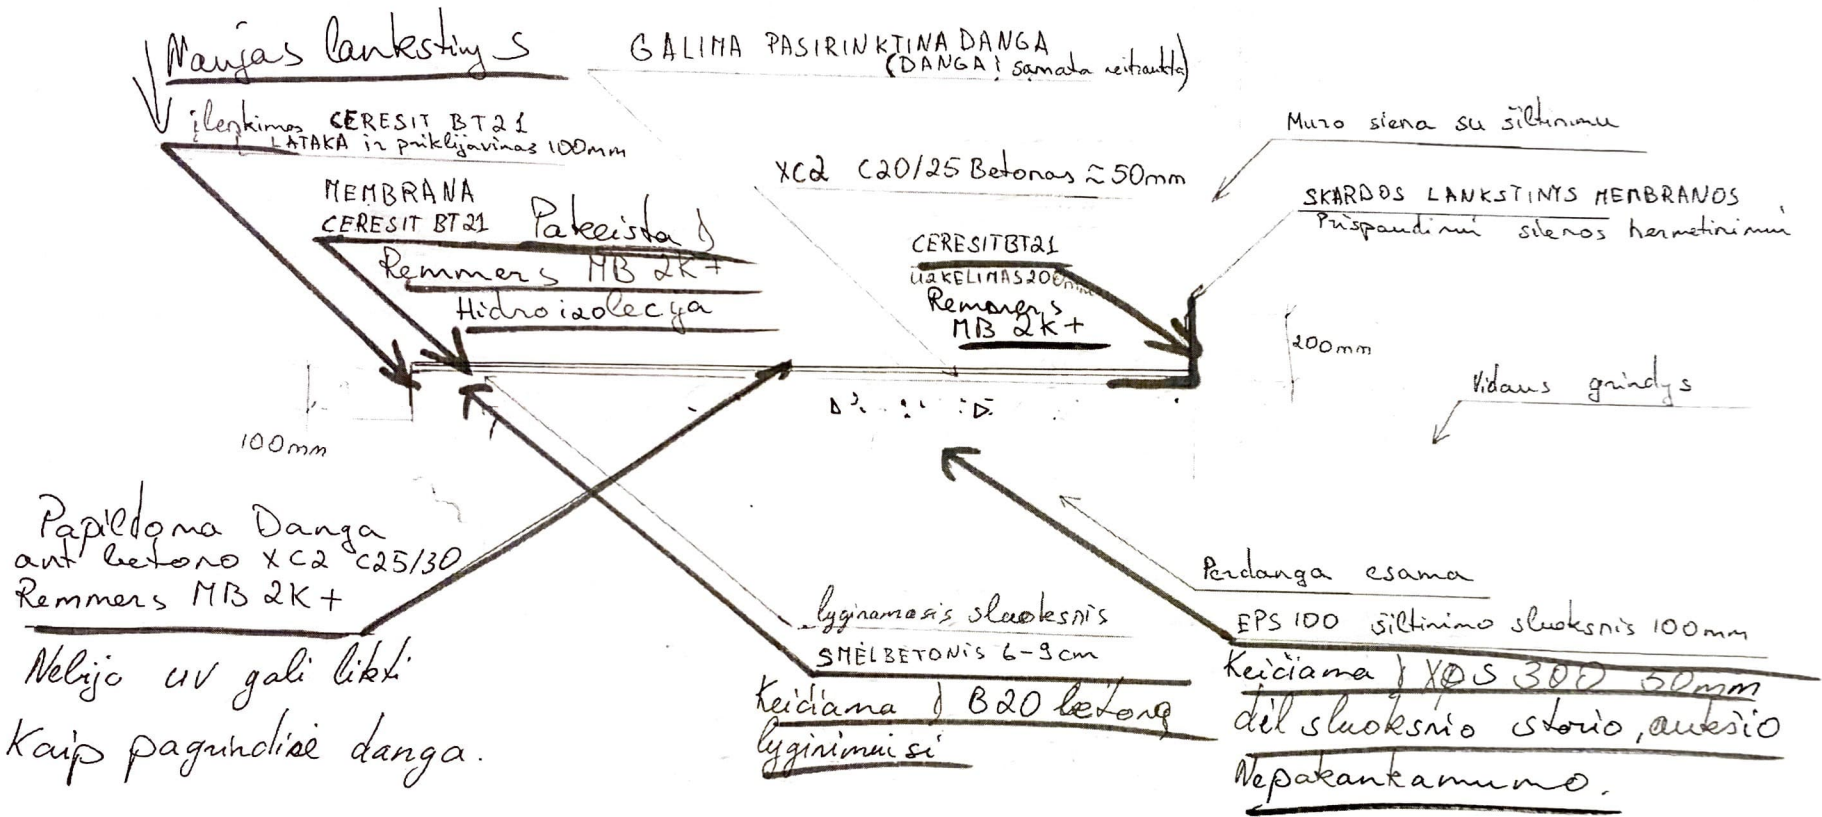 Naujas lankstinys
GALIMA PASIRINKTINA DANGA
(DANGA į samata neitraukta)
įlenkimas CERESIT BT21
LATAKA ir priklijavimas 100mm
Muro siena su šiltinimu
XC2 C20/25 Betonas ≈ 50mm
MEMBRANA
CERESIT BT21 Pakeista į
Remmers MB 2K+
Hidroizolecija
SKARDOS LANKSTINYS MEMBRANOS
Prispaudimui sienos hermetinimui
CERESIT BT21
UŽKELIMAS 200mm
Remmers
MB 2K+
200mm
Vidaus grindys
100mm
Papildoma Danga
ant betono XC2 C25/30
Remmers MB 2K+
Nebijo uv gali likti
Kaip pagrindinė danga.
lyginamasis sluoksnis
SMĖLBETONIS 6-9cm
Keičiama į B20 betoną
lyginimuisi
Perdanga esama
EPS 100 šiltinimo sluoksnis 100mm
Keičiama į XPS 300 50mm
dėl sluoksnio storio, aukščio
Nepakankamumo.